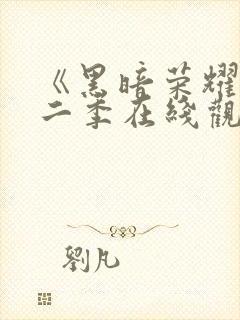 《黑暗荣耀
二季在线觀
劉凡